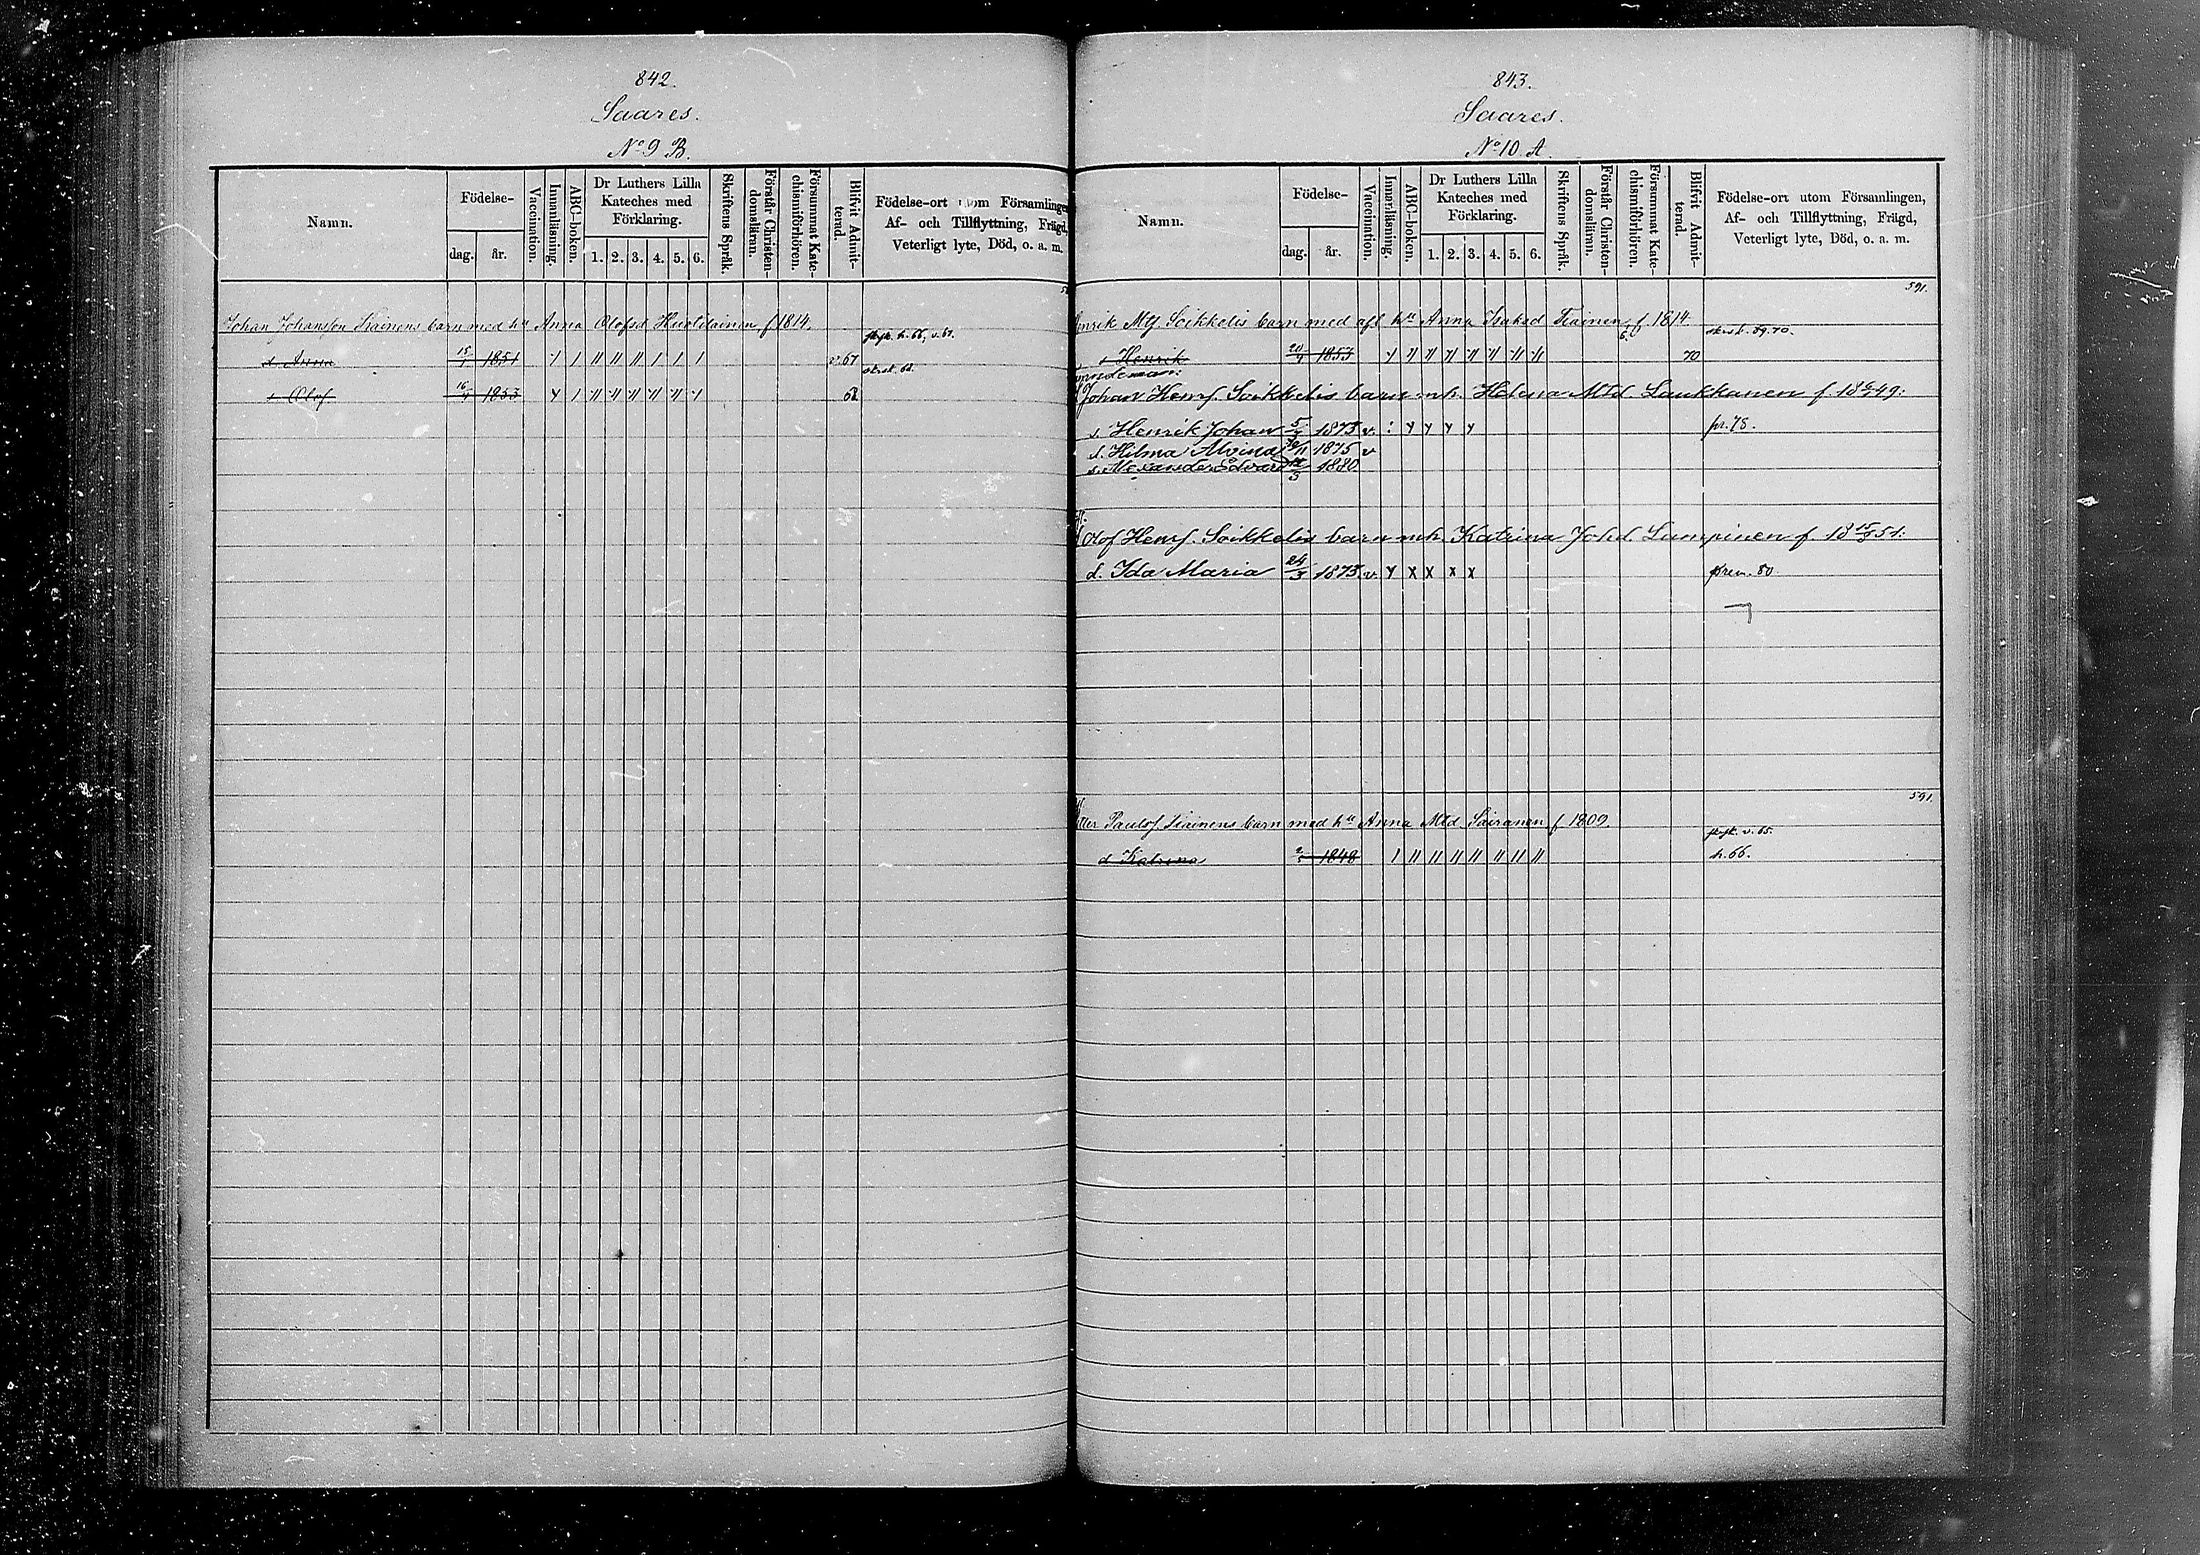 842.
Saares.
No 9 B.
Namn.
Födelse-
dag.
år.
Vaccination.
Innanläsning.
ABC-boken.
Dr Luthers Lilla Kateches med Förklaring.
1. 2. 3. 4. 5. 6.
Skriftens Språk.
Förstår Christendomsläran.
Försummat Katechismiförhören.
Blifvit Admitterad.
Födelse-ort utom Församlingen,
Af- och Tillflyttning, Frägd,
Veterligt lyte, Död, o. a. m.
Johan Johansson Tiainens barn med hu Anna Olofsd f 1814.
h. 66, v. 67.
d Anna 15/1 1851 v. 67
skrsk. 68.
s Olof 16/4 1853 68
843.
Saares.
No 10 A.
Namn.
Födelse-
dag.
år.
Vaccination.
Innanläsning.
ABC-boken.
Dr Luthers Lilla Kateches med Förklaring.
1. 2. 3. 4. 5. 6.
Skriftens Språk.
Förstår Christendomsläran.
Försummat Katechismiförhören.
Blifvit Admitterad.
Födelse-ort utom Församlingen,
Af- och Tillflyttning, Frägd,
Veterligt lyte, Död, o. a. m.
591.
Henrik Mts Soikkelis barn med afl hu Anna Isaksd Tiainen, f. 1814.
skrsk. 69. 70.
s Henrik 20/1 1853 70
Johan Henrs. Soikkelis barn mh. Helena Mtd. Laukkanen f. 18 49:
s. Henrik Johan 1873 v. pr. 78.
d. Hilma Alvina 1875 v
s. Alexander Edvard 1880
Olof Henrs. Soikkelis barn mh. Katrina Johd. Lampinen f. 18 15/5 51:
d. Ida Maria 24/3 1873 v. Y X X X X pren. 80.
591.
Petter Paulss. Tiainens barn med hu Anna Mtd Sairanen f 1809.
v. 65.
d Katrina 1848 h. 66.